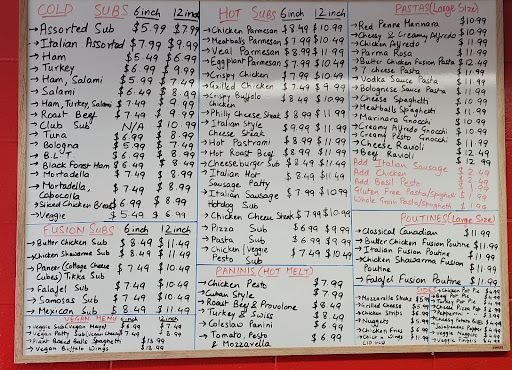 COLD SUBS 6inch 12inch
Assorted Sub $5.99 $7.99
Italian Assorted $7.99 $9.99
Ham $5.49 $6.99
Turkey $6.99 $9.99
Ham, Salami $5.99 $7.49
Salami $6.49 $8.99
Ham, Turkey, Salami $7.49 $9.99
Roast Beef $7.49 $9.99
Club Sub N/A $10.99
Tuna $6.99 $8.99
Bologna $5.99 $7.49
B.L.T $6.99 $8.99
Black Forest Ham $6.49 $8.49
Mortadella $7.49 $8.99
Mortadella, Capocolla $7.49 $8.99
Sliced Chicken Breast $6.99 $8.99
Veggie $5.49 $6.99
FUSION SUBS 6inch 12inch
Butter Chicken Sub $8.49 $11.49
Chicken Shawarma Sub $8.49 $11.49
Paneer (Cottage Cheese Cubes) Tikka Sub $7.49 $10.49
Falafel Sub $7.49 $10.49
Samosas Sub $7.49 $10.49
Mexican Sub $8.49 $11.49
VEGAN MENU 6inch 12inch
Veggie Sub (Vegan Mayo) $6.99 $7.49
Vegan Patty Sub (Vegan Cheese) $7.49 $8.99
Plant Based Balls Spaghetti $13.99
Vegan Buffalo Wings $12.99
HOT SUBS 6inch 12inch
Chicken Parmesan $8.49 $10.99
Meatballs Parmesan $7.99 $10.99
Veal Parmesan $8.99 $11.99
Eggplant Parmesan $7.99 $10.99
Crispy Chicken $7.99 $10.49
Grilled Chicken $7.49 $9.99
Crispy Buffalo Chicken $8.49 $10.99
Philly Cheese Steak $8.99 $11.99
Italian Style Cheese Steak $9.99 $11.99
Hot Pastrami $8.99 $11.99
Hot Roast Beef $8.99 $11.99
Cheeseburger Sub $8.49 $11.49
Italian Hot Sausage Patty $8.49 $11.49
Italian Sausage Hotdog Sub $7.99 $10.99
Chicken Cheese Steak $7.99 $10.99
Pizza Sub $6.99 $9.99
Pasta Sub $6.99 $9.99
Chicken/Veggie Pesto Sub $7.49 $10.49
PANINIS (HOT MELT)
Chicken Pesto $7.99
Cuban Style $7.99
Roast Beef & Provolone $8.49
Turkey & Swiss $8.49
Coleslaw Panini $6.99
Tomato, Pesto & Mozzarella $6.99
PASTAS (Large Size)
Red Penne Marinara $10.99
Cheesy & Creamy Alfredo $10.99
Chicken Alfredo $11.99
Parma Rosa $11.99
Butter Chicken Fusion Pasta $12.49
7 Cheese Pasta $11.99
Vodka Sauce Pasta $11.99
Bolognese Sauce Pasta $11.99
Cheese Spaghetti $10.99
Meatballs Spaghetti $11.99
Marinara Gnocchi $10.99
Creamy Alfredo Gnocchi $10.99
Creamy Pesto Gnocchi $10.99
Cheese Ravioli $11.99
Beef Ravioli $12.99
Add Italian Sausage
Add Chicken $2.49
Add Basil Pesto
Gluten Free Pasta/Spaghetti
Whole Grain Pasta/Spaghetti $1.99
POUTINES (Large Size)
Classical Canadian $11.99
Butter Chicken Fusion Poutine $11.99
Italian Fusion Poutine $11.99
Chicken Shawarma Fusion Poutine $11.99
Falafel Fusion Poutine $11.99
SIDES
Mozzarella Sticks $5.99
Grilled Cheese
Chicken Strips $6.99
Nuggets $5.99
Chicken Fries $6.99
Chicken Wings $11.99
Chicken Pot Pie
Beef Pot Pie
Turkey Pot Pie
Cheese Pizza Pop
Pepperoni
Cheesy Potato Bites
Jalapeno Popper
Veggie Nuggets
Veggie Fingers